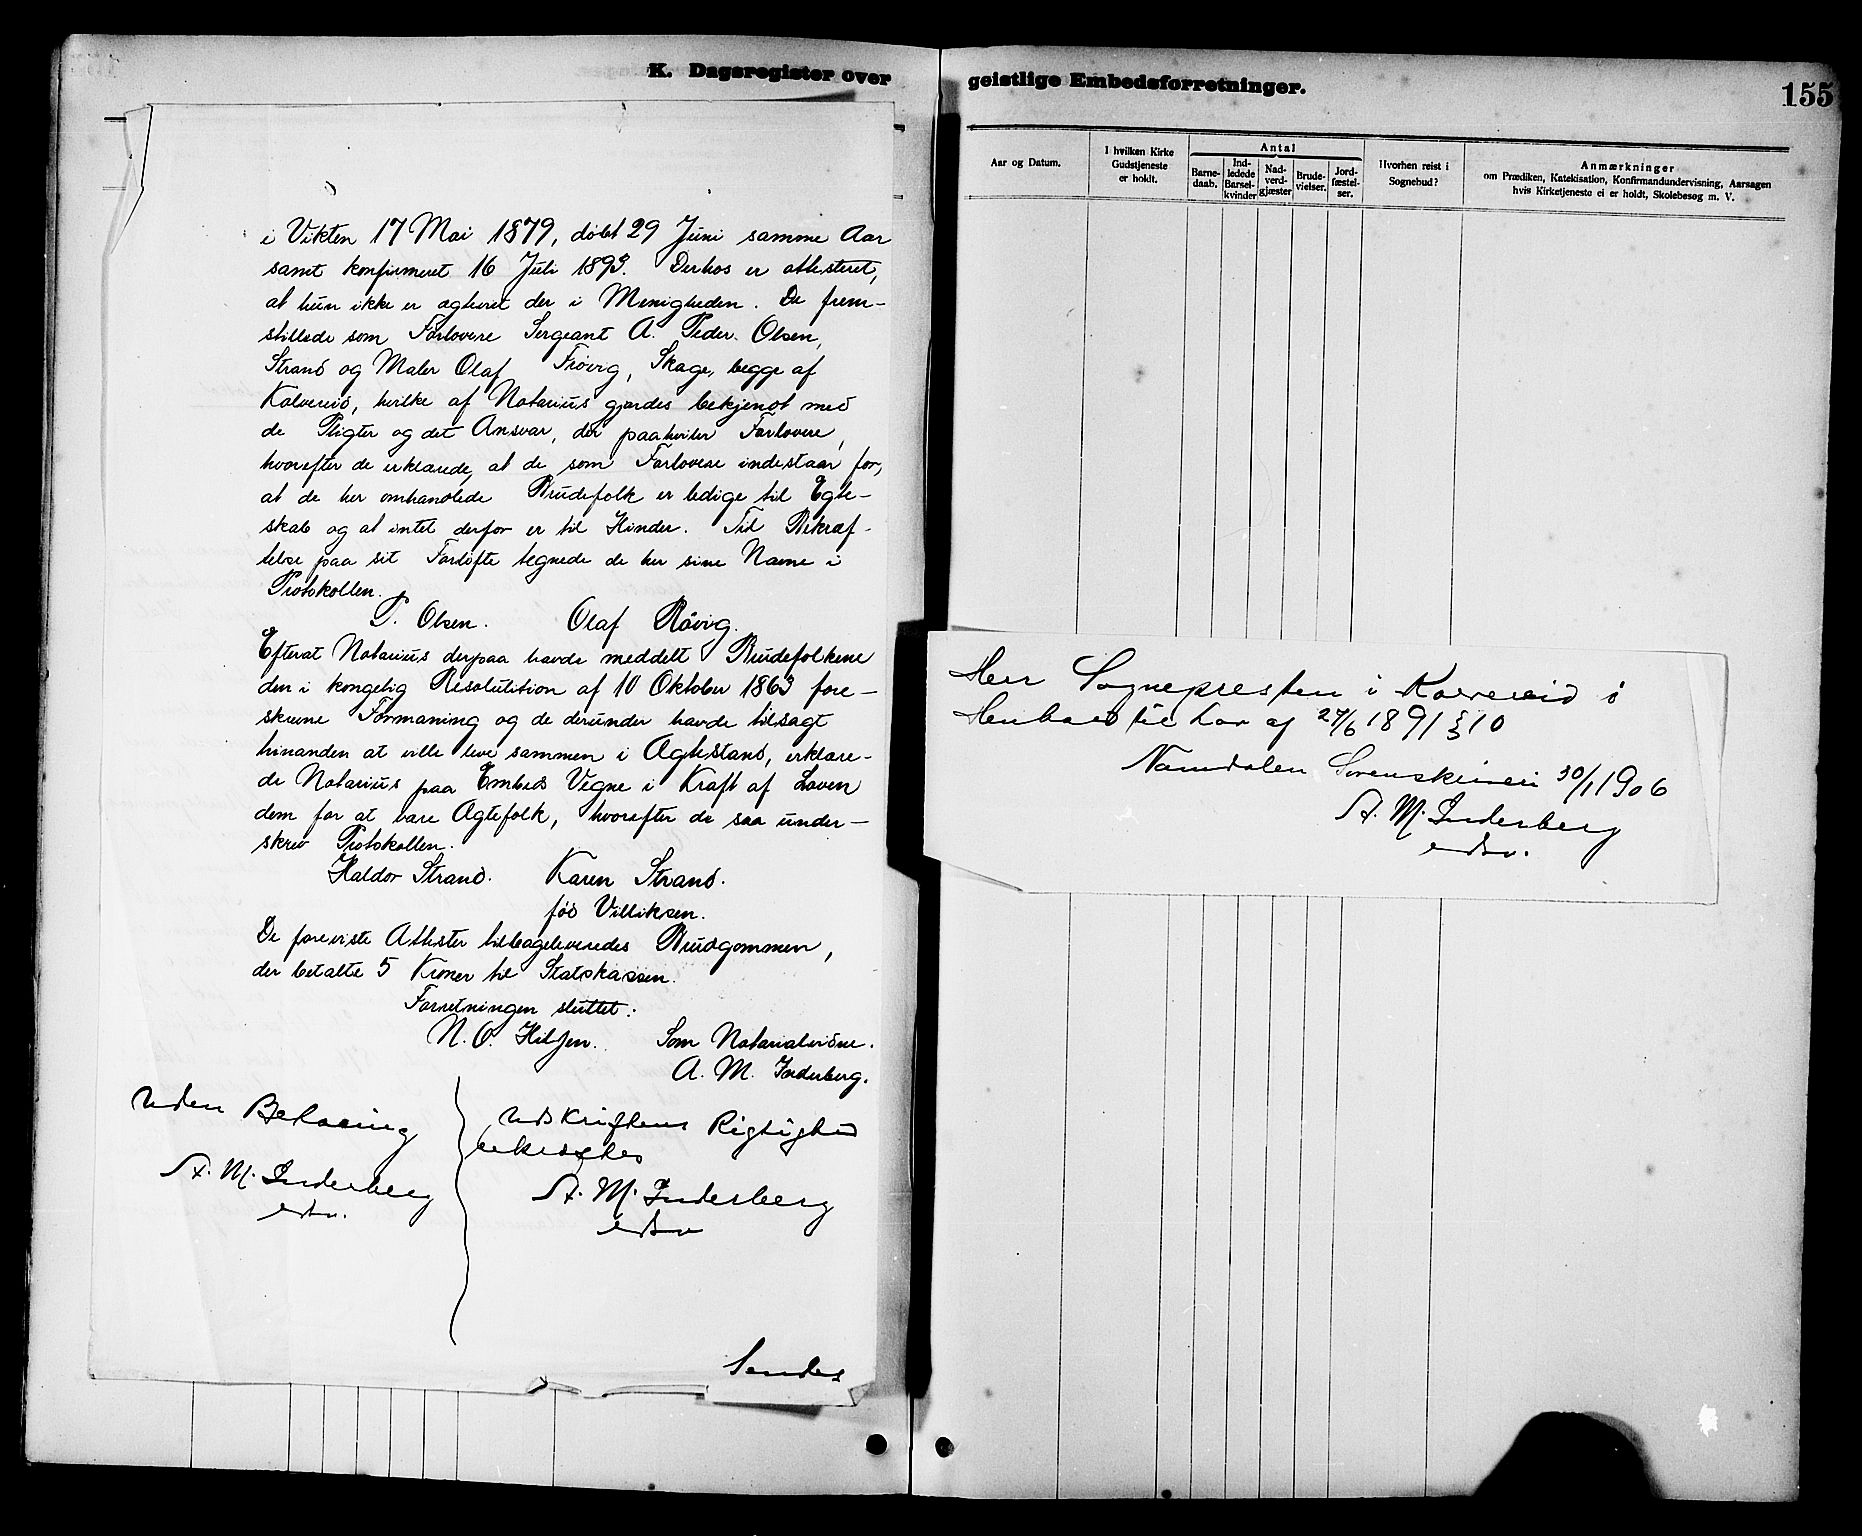 K. Dagsregister over
geistlige Embedsforretninger.
155
i Vikten 17 Mai 1879, døbt 29 Juni samme Aar
samt konfirmeret 16 Juli 1893. Derhos er attesteret,
at hun ikke er ægteviet der i Menigheden. De frem-
stillede som Forlovere Sergeant A. Peder Olsen,
Strand og Maler Olaf Røvig, Skage, begge af
Kolvereid, hvilke af Notarius gjordes bekjendt med
de Pligter og det Ansvar, der paahviler Forlovere,
hvorefter de erklærede, at de som Forlovere indestaar for,
at de her omhandlede Brudefolk er ledige til Egte-
skab og at intet derfor er til Hinder. Til Bekræf-
telse paa sit Forløfte tegnede de her sine Navne i
Protokollen.
P. Olsen. Olaf Røvig.
Efterat Notarius derpaa havde meddelt Brudefolkene
den i kongelig Resolutition af 10 Oktober 1863 fore-
skrevne Formaning og de derunder havde tilsagt
hinanden at ville leve sammen i Ægtestand, erklære-
de Notarius paa Embeds Vegne i Kraft af Loven
dem for at være Ægtefolk, hvorefter de saa under-
skrev Protokollen.
Haldor Strand. Karen Strand.
fød Villiksen.
De foreviste Attester tilbageleveredes Brudgommen,
der betalte 5 Kroner til Statskassen.
Forretningen sluttet.
N. O. Hiljen. Som Notarialvidne.
A. M. Inderberg.
Uden Betaling
A. M. Inderberg
edsv.
Udskriftens Rigtighed
bekræftes
A. M. Inderberg
edsv
Sendes
Aar og Datum.
I hvilken Kirke
Gudstjeneste
er holdt.
Antal
Barne-
daab.
Ind-
ledede
Barsel-
kvinder
Nad-
verd-
gjæster
Brude-
vielser.
Jord-
fæstel-
ser.
Hvorhen reist i
Sognebud?
Anmærkninger
om Prædiken, Katekisation, Konfirmandundervisning, Aarsagen
hvis Kirketjeneste ei er holdt, Skolebesøg m. V.
Herr Sognepresten i Kolvereid i
Henhold til Lov af 27/6 1891 § 10
Namdalen Sorenskriveri 30/1 1906
A. M. Inderberg
edsv.